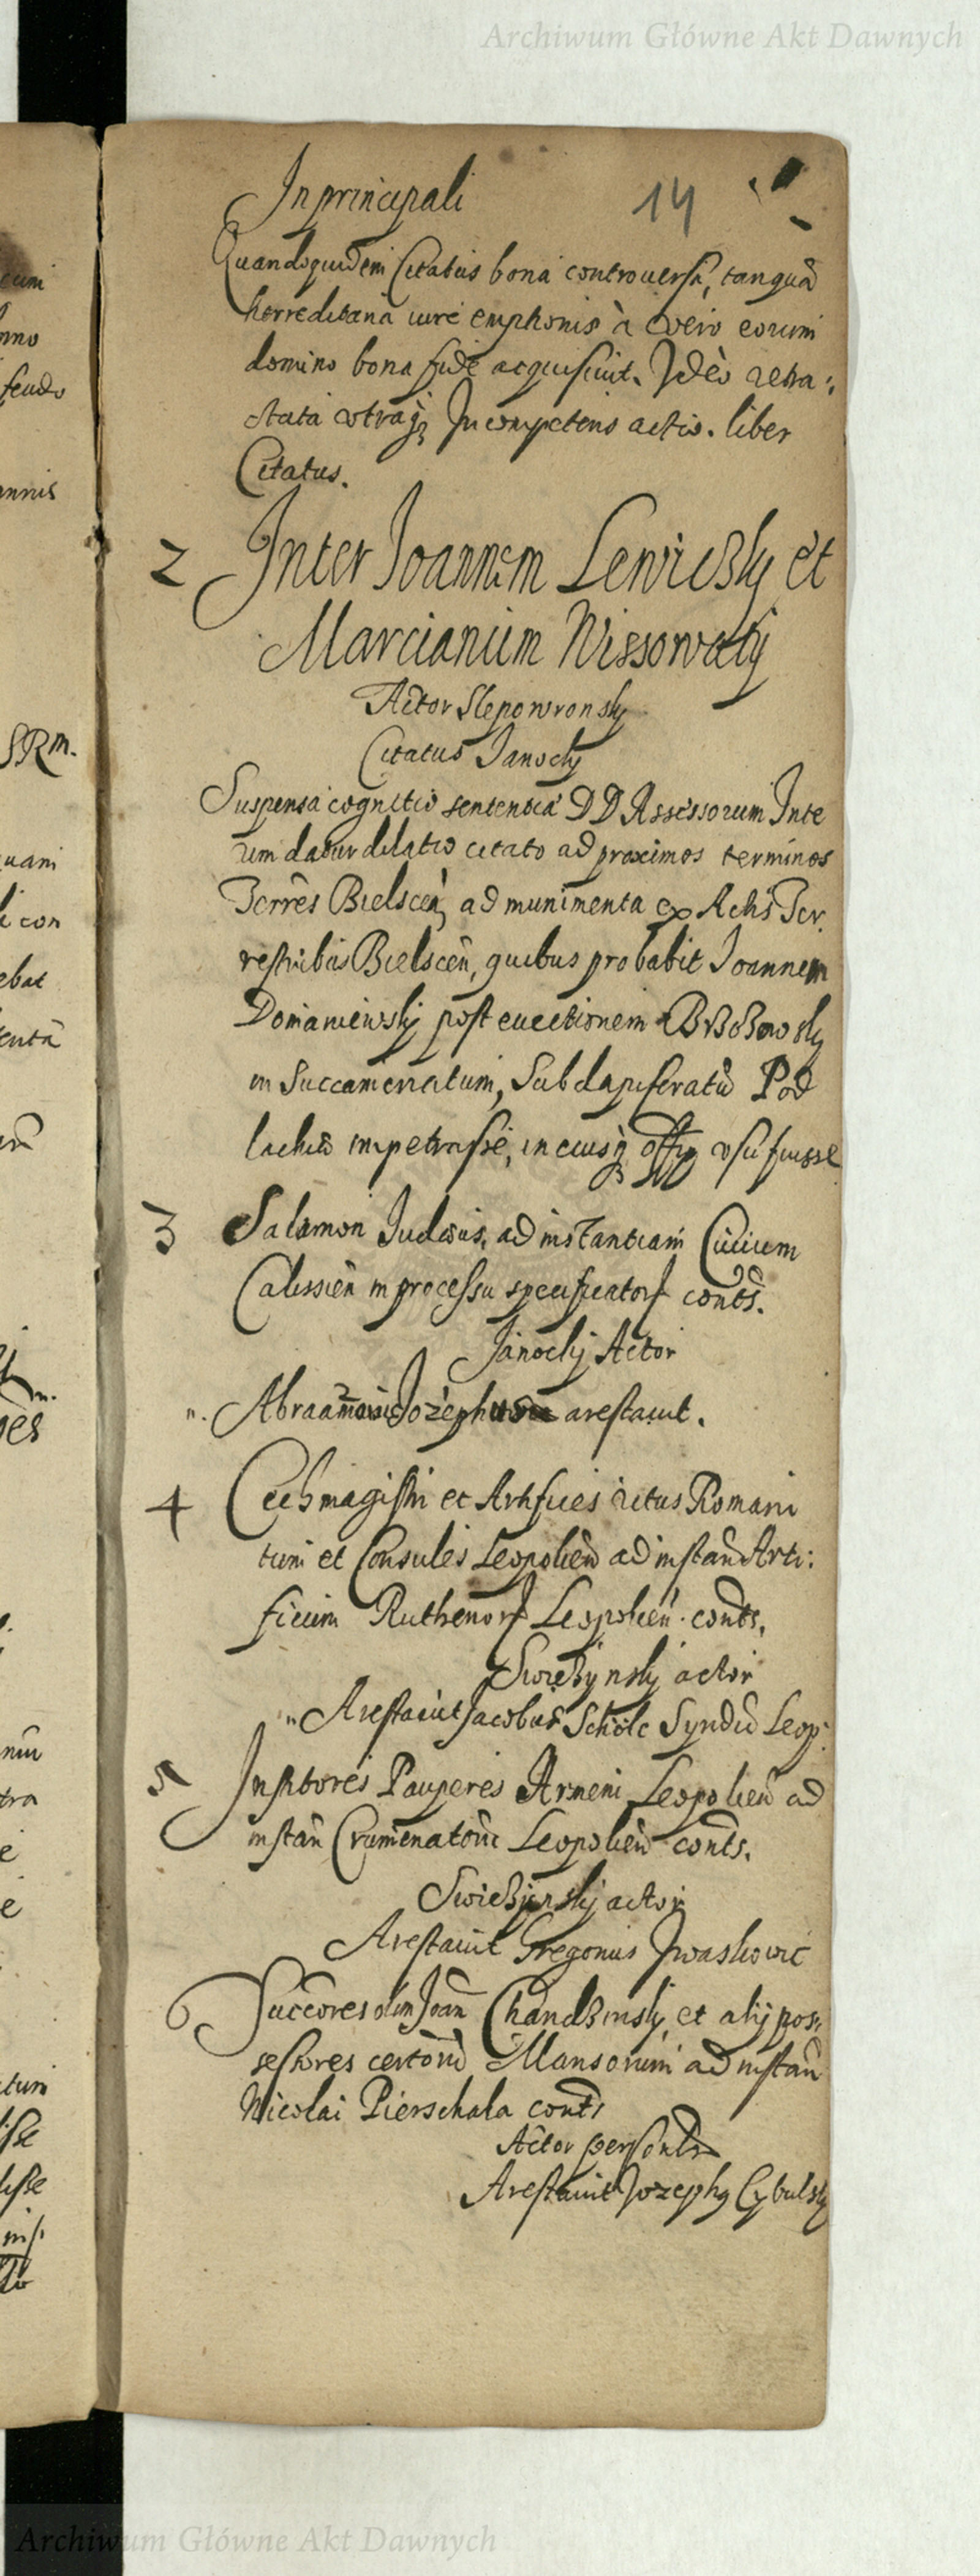 Archiwum Główne Akt Dawnych
In principali
14
Quandoquidem Citatus bona controversa, tanquā
herreditaria iure emptionis à vero eorum
domino bona fide acquisiuit. Ideò retra:
ctata utraqȝ Incompetens actio. liber
Citatus.
2 Inter Joannem Lewiczky et
Marcianum Wissowaty
Actor Slepowronsky
Citatus Janocky
Suspensa cognitio sententia DD Assessorum Inte
rim datur dilatio citato ad proximos terminos
Terrēs Bielscen, ad munimenta ex Actis Ter
restribus Bielscēn, quibus probabit Joannem
Domaniewsky post euectionem
in Succamerratum, Subdapiferatū Pod
lachiæ impetrasse, in
3 Salamon Judæus, ad instantiam Ciuium
Calissiēn in processu specificatorum conts.
Janocky Actor
Abraamowic Jozeph arestauit.
4 Cechmagistri et Artifices ritus Romani
tum et Consules Leopoliēn ad instān Arti:
ficum Ruthenorum Leopoliēn. conts.
Swiezynsky actor
Arestauit Jacobus Scholc Syndic Leop:
5 Institores Pauperes Armeni Leopoliēn ad
instān Crumenatorū Leopoliēn conts.
Swiezynsky actor
Arestauit Gregorius Jwaskowic
6 Succores olim Joan Chandzinsky et alij pos:
sessores certorū Mansorum ad instān
Nicolai Pierschala conts
Actor personlr
Arestauit Jozeph9 Cybulsky
Archiwum Główne Akt Dawnych